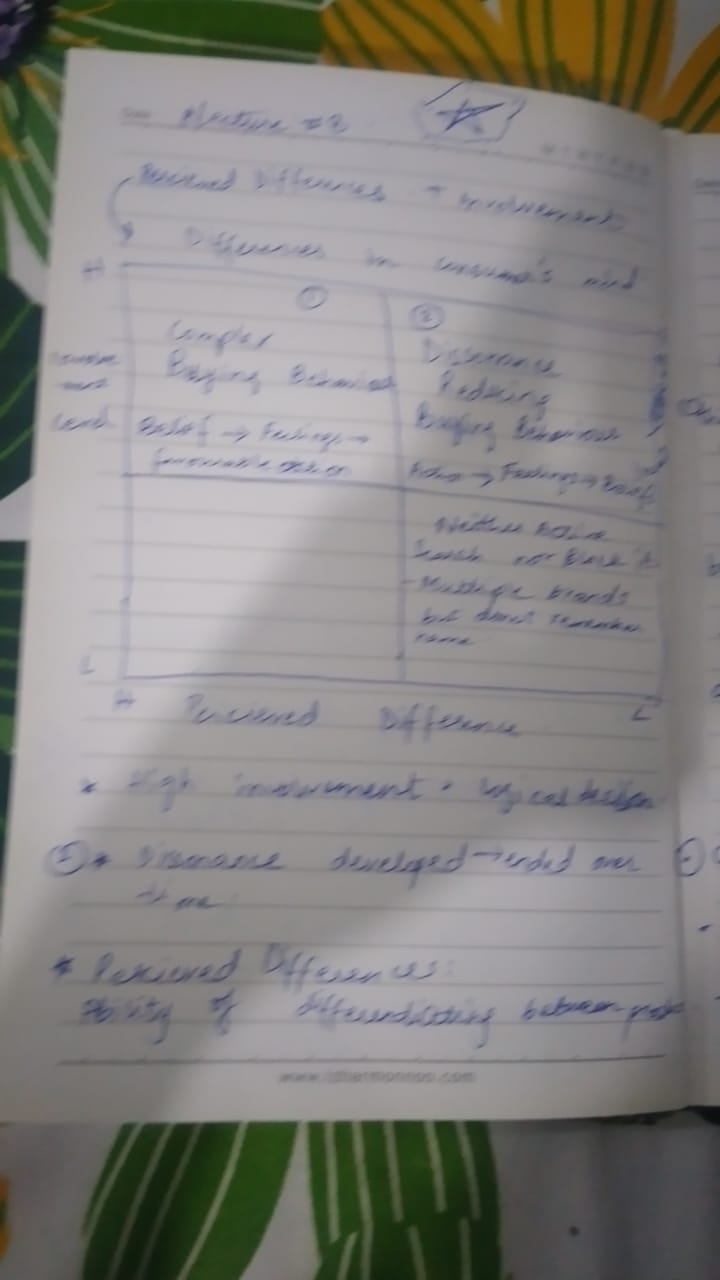 Lecture #2
Percieved Differences + Involvement
Differences in consumer's mind
H
① ②
Complex
Buying Behaviour
Belief → Feelings →
favourable action
Dissonance
Reducing
Buying Behaviour
Action → Feelings → Beliefs
Neither Active
Search nor
- Multiple brands
but doesn't remember
name
L
H Percieved Difference L
* High involvement = logical decision
② * Dissonance developed → ended over
time.
* Percieved Differences:
Ability of differentiating between